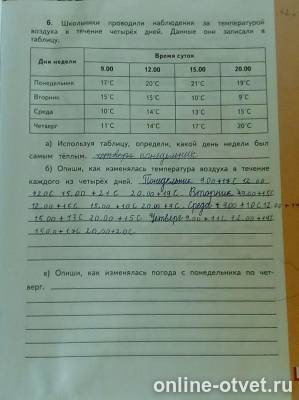 6. Школьники проводили наблюдения за температурой
воздуха в течение четырёх дней. Данные они записали в
таблицу.
Дни недели
Время суток
9.00 12.00 15.00 20.00
Понедельник 17°С 20°С 21°С 19°С
Вторник 15°С 15°С 10°С 9°С
Среда 10°С 14°С 13°С 15°С
Четверг 11°С 14°С 17°С 20°С
а) Используя таблицу, определи, какой день недели был
самым тёплым. четверг понедельник
б) Опиши, как изменялась температура воздуха в течение
каждого из четырёх дней. Понедельник 9.00+17С 12.00
+20С 15.00+21С 20.00+19С Вторник +9.00+15С
12.00+15С 15.00+10С 20.00+9С Среда +9.00+10С 12.00+14
15.00+13С 20.00+15С Четверг 9.00+11С 12.00+14С
15.00+17С 20.00+20С
в) Опиши, как изменялась погода с понедельника по чет-
верг.
online-otvet.ru